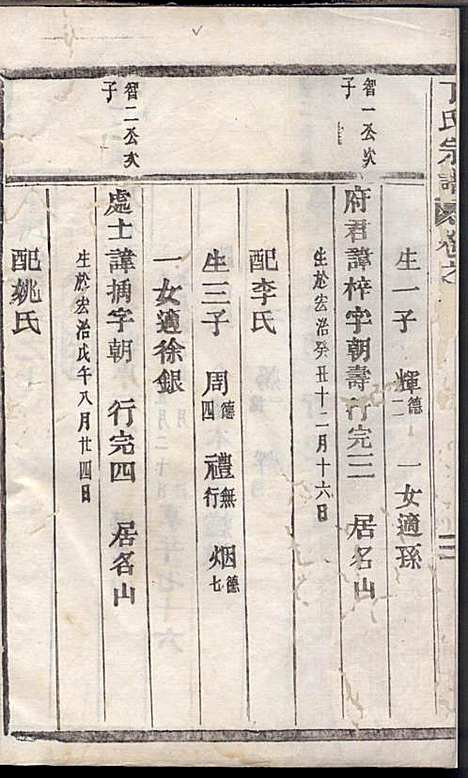 丁氏宗譜 卷之
生一子 輝德二 一女適孫
智一公次子
府君諱梓字朝壽行完三 居名山
生於宏治癸丑十二月十六日
配李氏
生三子 周德四 禮無行 烟德七
一女適徐銀
智二公次子
處士諱㨂字朝 行完四 居名山
生於宏治戊午八月廿四日
配姚氏